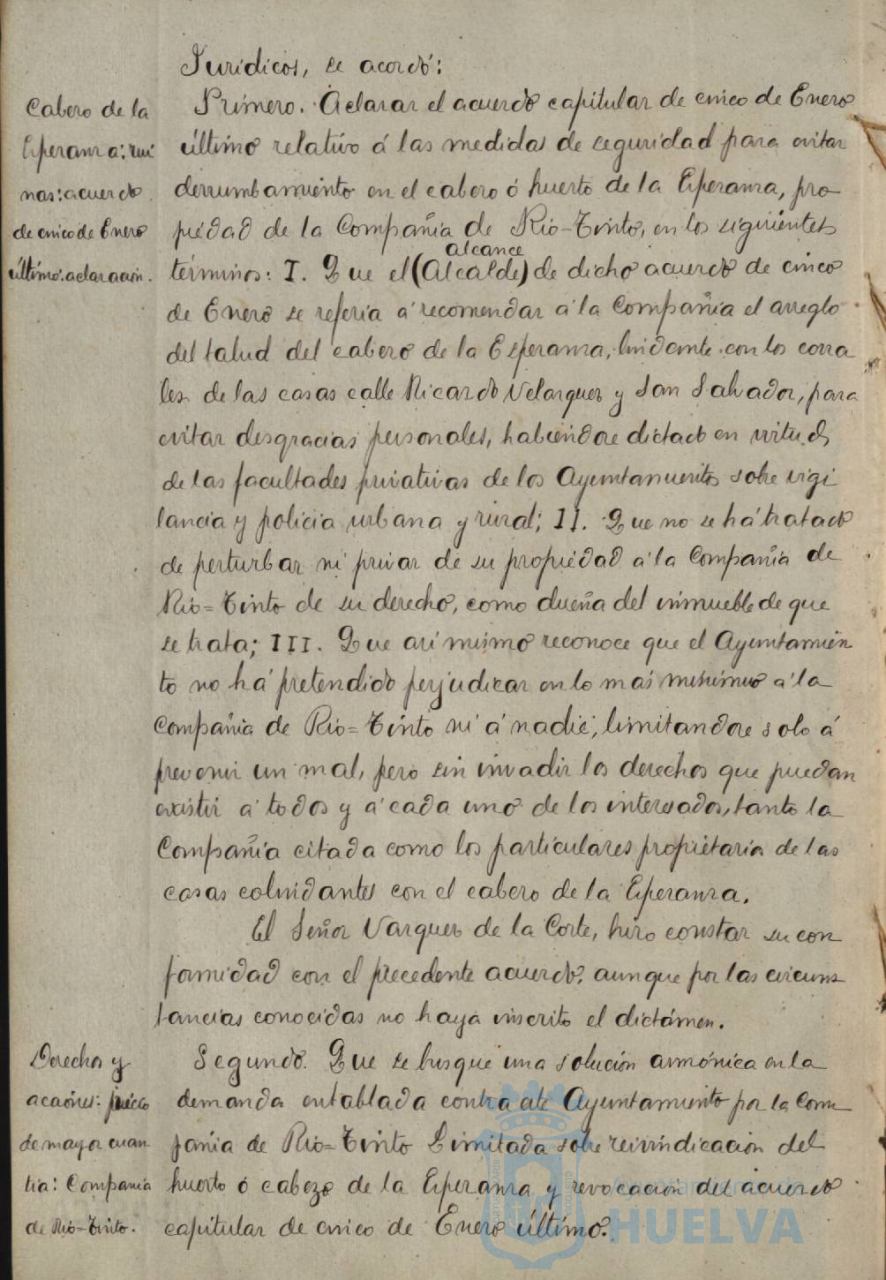 Jurídicos, se acordó:
Cabezo de la
Esperanza: rui
nas: acuerdo
de cinco de Enero
último: aclaración.
Primero. Aclarar el acuerdo capitular de cinco de Enero
último relativo á las medidas de seguridad para evitar
derrumbamiento en el cabezo ó huerto de la Esperanza, pro
piedad de la Compañía de Rio-Tinto, en los siguientes
alcance
términos: I. Que el (Alcalde) de dicho acuerdo de cinco
de Enero se referia á recomendar á la Compañía el arreglo
del talud del cabezo de la Esperanza, lindante con los corra
les de las casas calle Ricardo Velazquez y San Salvador, para
evitar desgracias personales, habiéndose dictado en virtud
de las facultades privativas de los Ayuntamientos sobre vigi
lancia y policia urbana y rural; II. Que no se há tratado
de perturbar ni privar de su propiedad á la Compañía de
Rio=Tinto de su derecho, como dueña del inmueble de que
se trata; III. Que asi mismo reconoce que el Ayuntamien
to no há pretendido perjudicar en lo mas minimo á la
Compañía de Rio=Tinto ni á nadie, limitandose solo á
prevenir un mal, pero sin invadir los derechos que puedan
existir á todos y á cada uno de los interesados, tanto la
Compañía citada como los particulares propietaria de las
casas colindantes con el cabezo de la Esperanza.
El Señor Vazquez de la Corte, hizo constar su con
formidad con el precedente acuerdo, aunque por las circuns
tancias conocidas no haya inscrito el dictámen.
Derechos y
acciones: juicio
de mayor cuan
tia: Compañia
de Rio-Tinto.
Segundo. Que se busque una solución armónica en la
demanda entablada contra este Ayuntamiento por la Com
pañia de Rio=Tinto Limitada sobre reivindicación del
huerto ó cabezo de la Esperanza y revocación del acuerdo
capitular de cinco de Enero último.
HUELVA